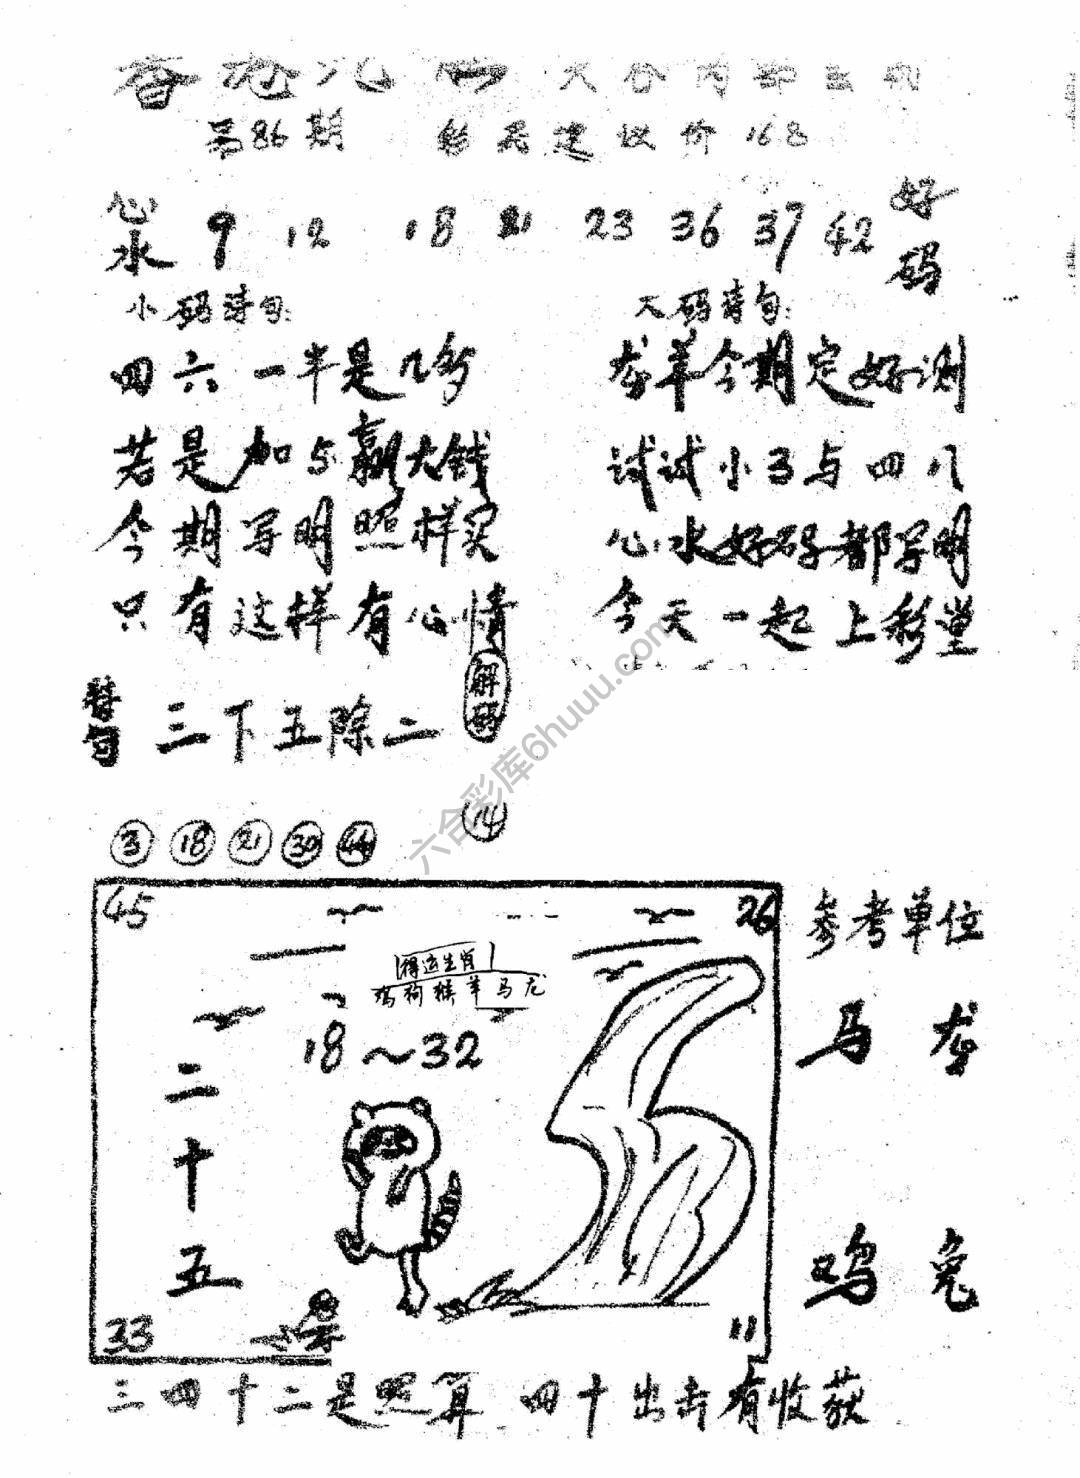 第86期 彩民建议价168
心水 9 12 18 21 23 36 37 42 好码
小码诗句:
四六一半是几多
若是加5赢大钱
今期写明照样买
只有这样有心情
大码诗句:
龙羊今期定好测
试试小3与四八
心水好码都写明
今天一起上彩堂
解码
三下五除二
14
3 18 21 30 44
45
26
得运生肖
鸡狗猴羊马龙
18～32
二十五
33
11
参考单位
马 龙
鸡 兔
三四十二是照算 四十出击有收获
六合彩库6huuu.com